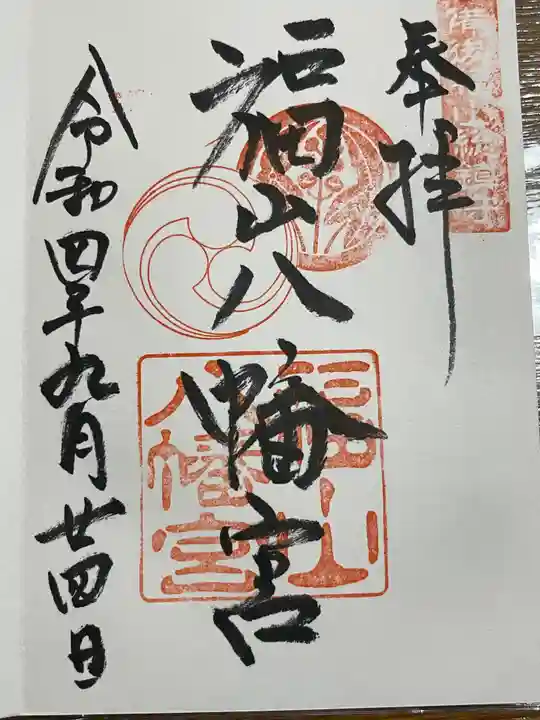 奉拝
福山八幡宮
福山八幡宮
令和四年九月廿四日